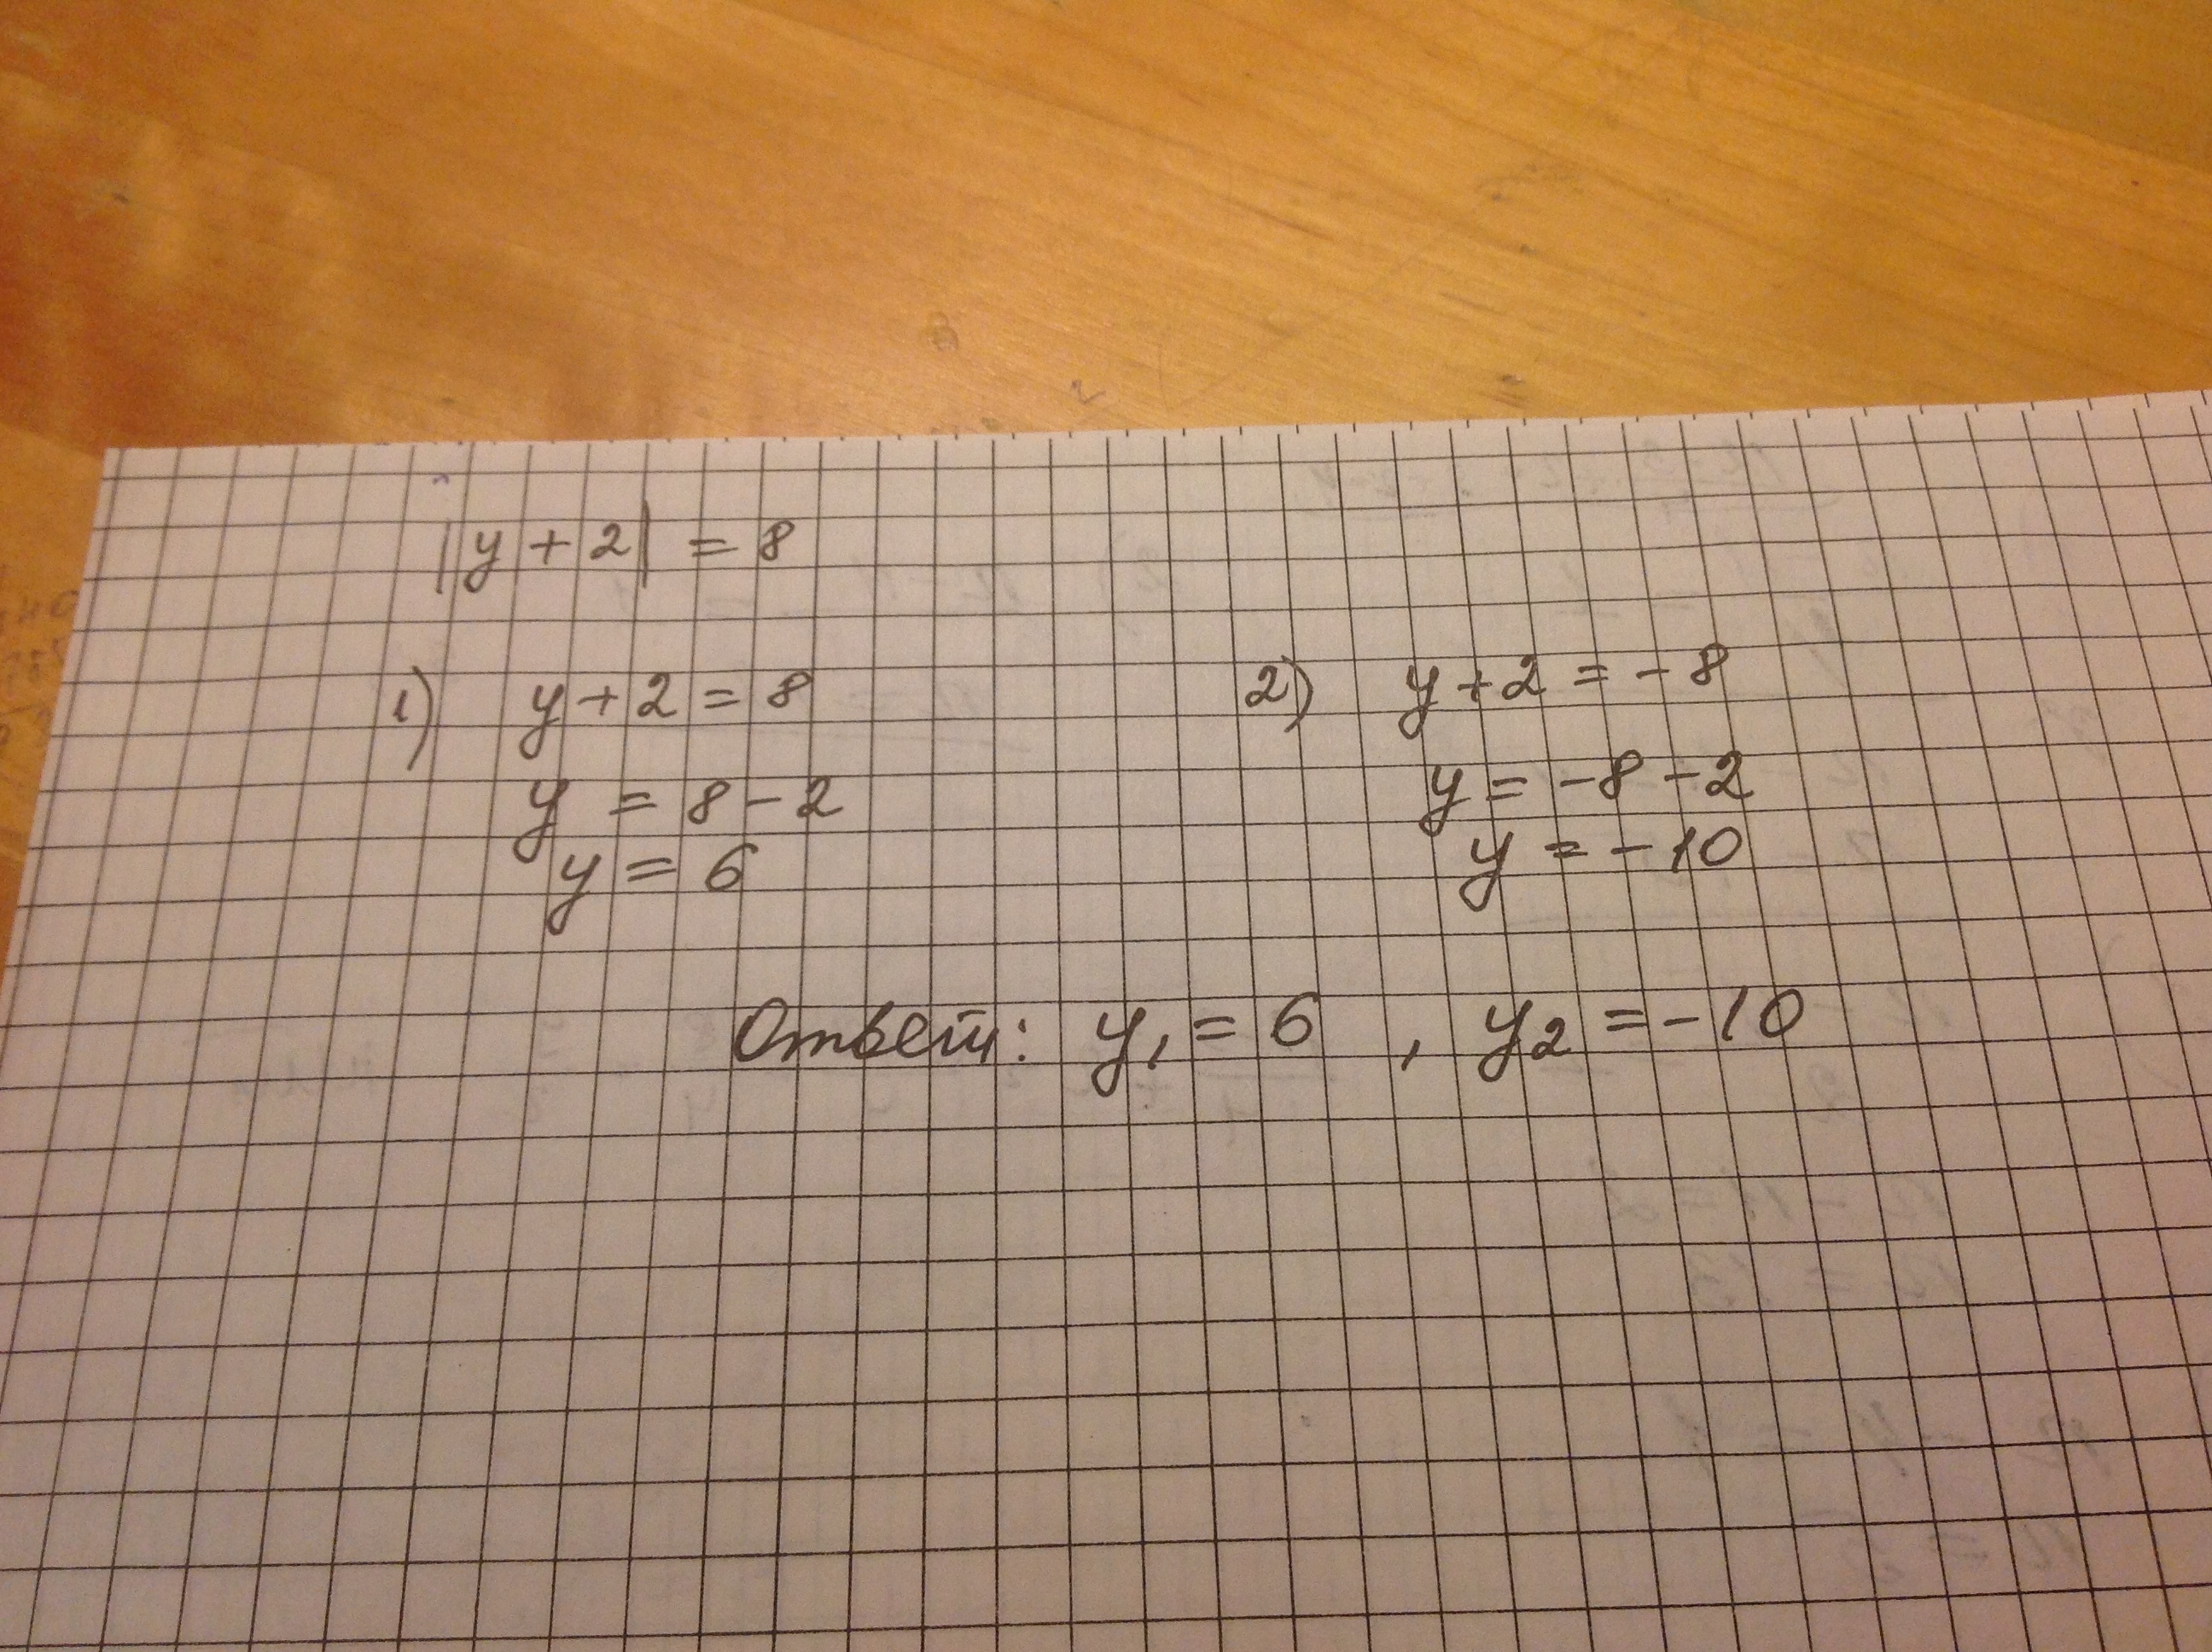 |y + 2| = 8
1) y + 2 = 8
y = 8 - 2
y = 6
2) y + 2 = - 8
y = -8 - 2
y = - 10
Ответ: y₁ = 6 , y₂ = - 10